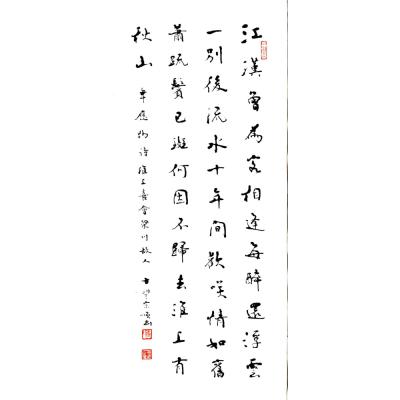 江漢曾為客相逢每醉還浮雲
一別後流水十年間歡笑情如舊
蕭疏鬢已斑何因不歸去淮上有
秋山 韋應物詩淮上喜會梁川故人